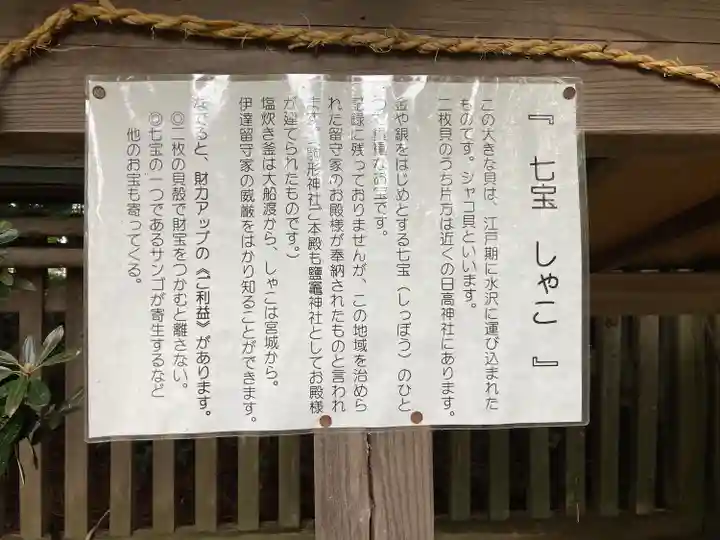 『 七宝 しゃこ 』
この大きな貝は、江戸期に水沢に運び込まれた
ものです。シャコ貝といいます。
二枚貝のうち片方は近くの日高神社にあります。
金や銀をはじめとする七宝（しっぽう）のひと
つで貴重なお宝です。
記録に残っておりませんが、この地域を治めら
れた留守家のお殿様が奉納されたものと言われ
ます。（駒形神社ご本殿も鹽竈神社としてお殿様
が建てられたものです。）
塩炊き釜は大船渡から、しゃこは宮城から。
伊達留守家の威厳をはかり知ることができます。
なでると、財力アップの《ご利益》があります。
◎二枚の貝殻で財宝をつかむと離さない。
◎七宝の一つであるサンゴが寄生するなど
他のお宝も寄ってくる。